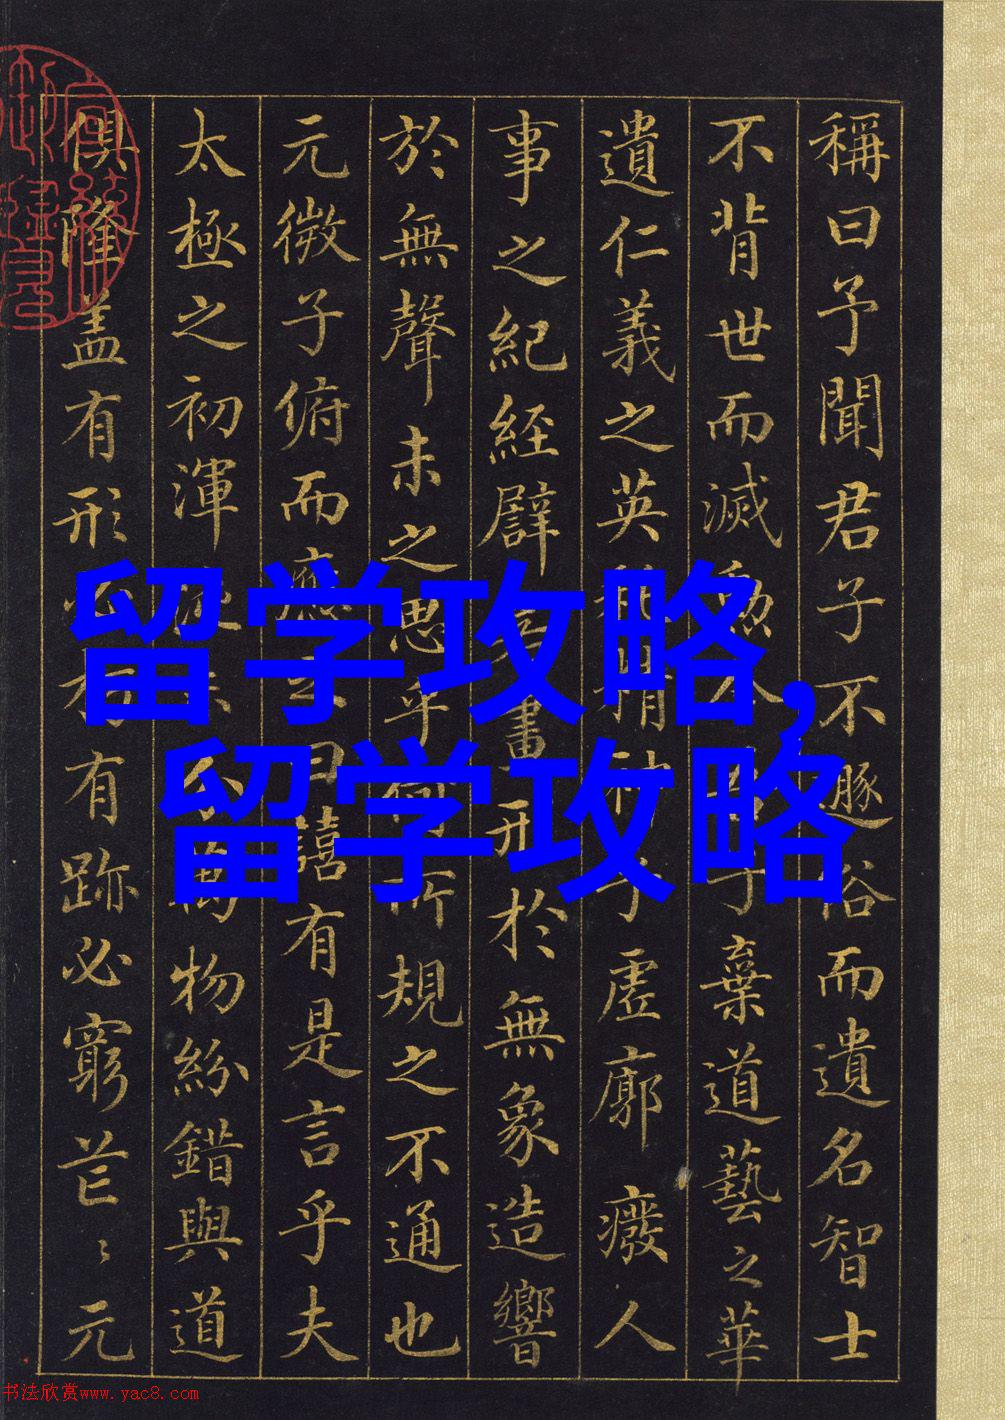 稱曰予聞君子不遯俗而遺名智士
不背世而滅勲子棄道藝之華
遺仁義之英精虛廓癈人
事之紀經譬畫形於無象造響
於無聲未之思乎所規之不通也
元微子俯而應曰譆有是言乎夫
太極之初渾物紛錯與道
俱隆盖有形必有跡必窮芒〻元
留学攻略,
留学攻略
书法欣赏www.yac8.com